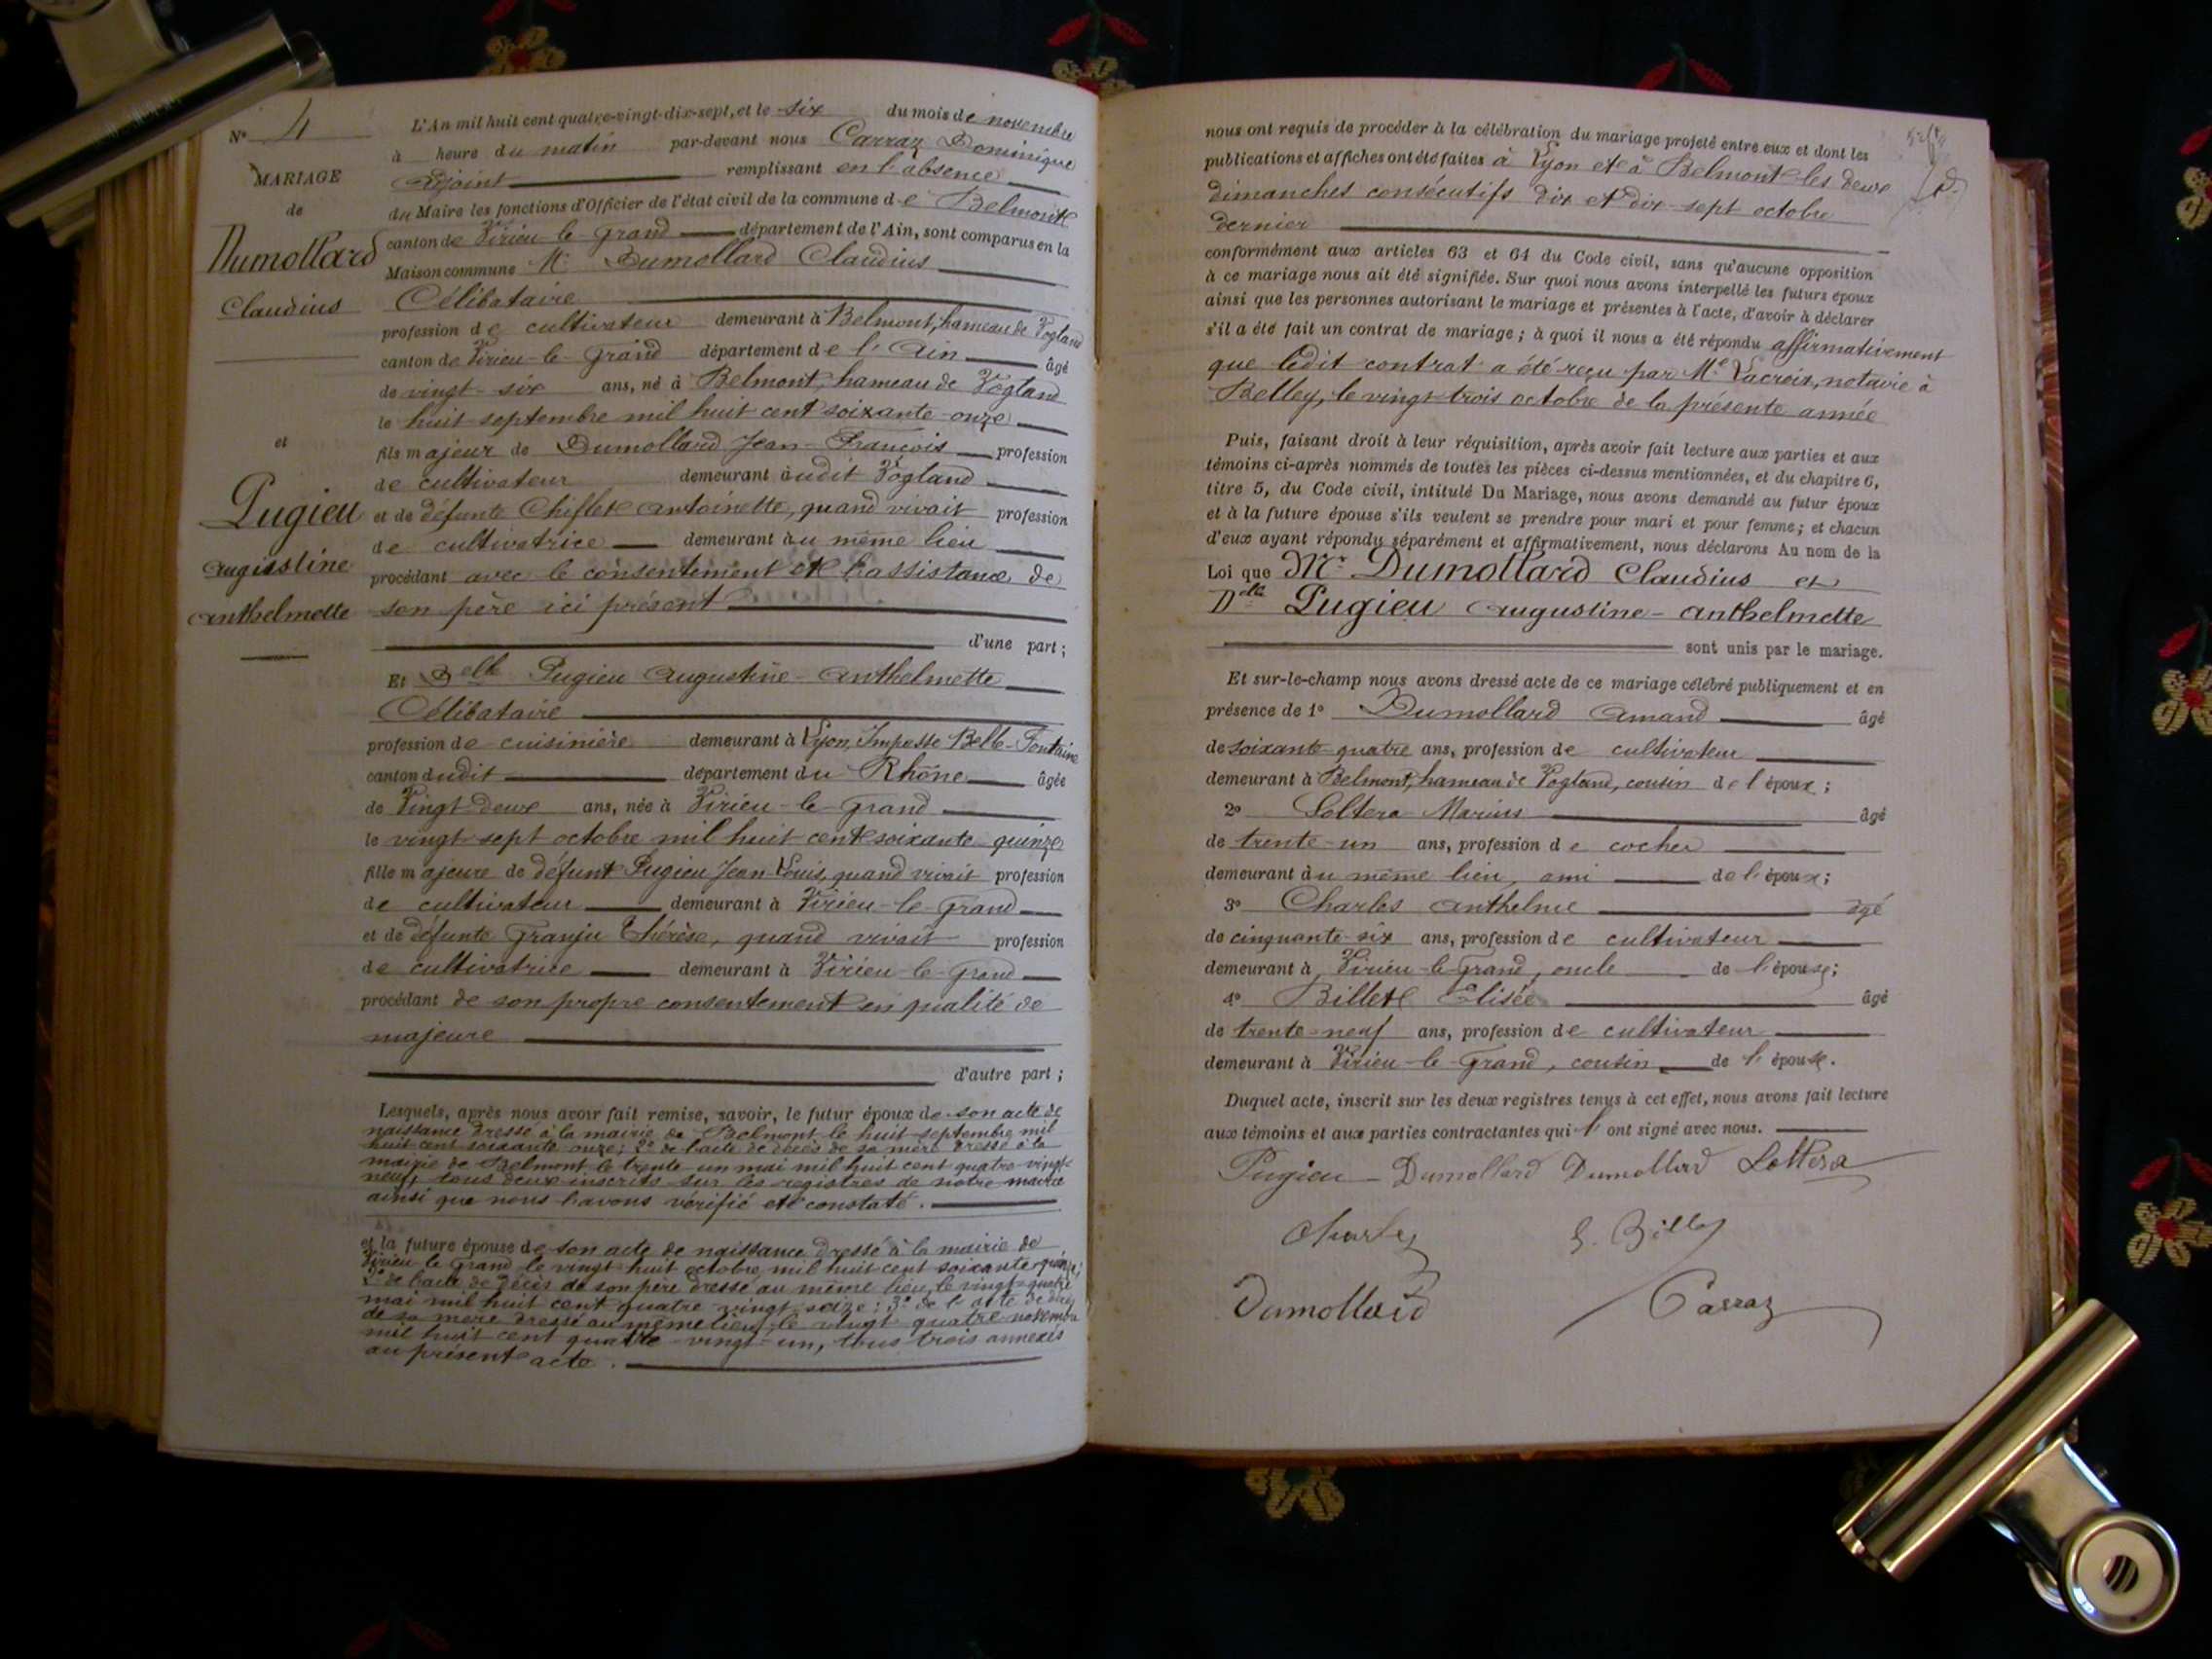 N° 4
MARIAGE
de
Dumollard
Claudius
et
Pugieu
Augustine
Anthelmette
L'An mil huit cent quatre-vingt-dix-sept, et le six du mois de novembre
à heure du matin par-devant nous Carraz Dominique
Adjoint remplissant en l'absence
du Maire les fonctions d'Officier de l'état civil de la commune de Belmont
canton de Virieu-le-Grand département de l'Ain, sont comparus en la
Maison commune Mr Dumollard Claudius
Célibataire
profession de cultivateur demeurant à Belmont, hameau de Vogland
canton de Virieu-le-Grand département de l'Ain âgé
de vingt-six ans, né à Belmont, hameau de Vogland
le huit septembre mil huit cent soixante-onze
fils majeur de Dumollard Jean-François profession
de cultivateur demeurant audit Vogland
et de défunte Chiflet Antoinette, quand vivait profession
de cultivatrice demeurant au même lieu
procédant avec le consentement et l'assistance de
son père ici présent
d'une part ;
Et Delle Pugieu Augustine-Anthelmette
Célibataire
profession de cuisinière demeurant à Lyon, Impasse Belle-Fontaine
canton dudit département du Rhône âgée
de Vingt-deux ans, née à Virieu-le-Grand
le vingt-sept octobre mil huit cent soixante-quinze
fille majeure de défunt Pugieu Jean-Louis, quand vivait profession
de cultivateur demeurant à Virieu-le-Grand
et de défunte Granju Thérèse, quand vivait profession
de cultivatrice demeurant à Virieu-le-Grand
procédant de son propre consentement en qualité de
majeure
d'autre part ;
Lesquels, après nous avoir fait remise, savoir, le futur époux de son acte de
naissance dressé à la mairie de Belmont le huit septembre mil
huit cent soixante-onze ; 2° de l'acte de décès de sa mère dressé à la
mairie de Belmont le trente-un mai mil huit cent quatre-vingt-
neuf, tous deux inscrits sur les registres de notre mairie
ainsi que nous l'avons vérifié et constaté.
et la future épouse de son acte de naissance dressé à la mairie de
Virieu-le-Grand le vingt-huit octobre mil huit cent soixante-quinze ;
2° de l'acte de décès de son père dressé au même lieu, le vingt-quatre
mai mil huit cent quatre-vingt-seize ; 3° de l'acte de décès
de sa mère dressé au même lieu, le vingt-quatre novembre
mil huit cent quatre-vingt-un, tous trois annexés
au présent acte.
nous ont requis de procéder à la célébration du mariage projeté entre eux et dont les
publications et affiches ont été faites à Lyon et à Belmont les deux
dimanches consécutifs dix et dix-sept octobre
dernier
conformément aux articles 63 et 64 du Code civil, sans qu'aucune opposition
à ce mariage nous ait été signifiée. Sur quoi nous avons interpellé les futurs époux
ainsi que les personnes autorisant le mariage et présentes à l'acte, d'avoir à déclarer
s'il a été fait un contrat de mariage ; à quoi il nous a été répondu affirmativement
que ledit contrat a été reçu par Me Lacroix, notaire à
Belley, le vingt-trois octobre de la présente année
Puis, faisant droit à leur réquisition, après avoir fait lecture aux parties et aux
témoins ci-après nommés de toutes les pièces ci-dessus mentionnées, et du chapitre 6,
titre 5, du Code civil, intitulé Du Mariage, nous avons demandé au futur époux
et à la future épouse s'ils veulent se prendre pour mari et pour femme ; et chacun
d'eux ayant répondu séparément et affirmativement, nous déclarons Au nom de la
Loi que Mr Dumollard Claudius et
Dlle Pugieu Augustine-Anthelmette
sont unis par le mariage.
Et sur-le-champ nous avons dressé acte de ce mariage célébré publiquement et en
présence de 1° Dumollard Amand âgé
de soixante-quatre ans, profession de cultivateur
demeurant à Belmont, hameau de Vogland, cousin de l'époux ;
2° Soltera Marius âgé
de trente-un ans, profession de cocher
demeurant au même lieu, ami de l'époux ;
3° Charles Anthelme âgé
de cinquante-six ans, profession de cultivateur
demeurant à Virieu-le-Grand, oncle de l'épouse ;
4° Billet Elisée âgé
de trente-neuf ans, profession de cultivateur
demeurant à Virieu-le-Grand, cousin de l'épouse.
Duquel acte, inscrit sur les deux registres tenus à cet effet, nous avons fait lecture
aux témoins et aux parties contractantes qui l'ont signé avec nous.
Pugieu Dumollard Dumollard Soltera
Charles E. Billet
Dumollard Carraz